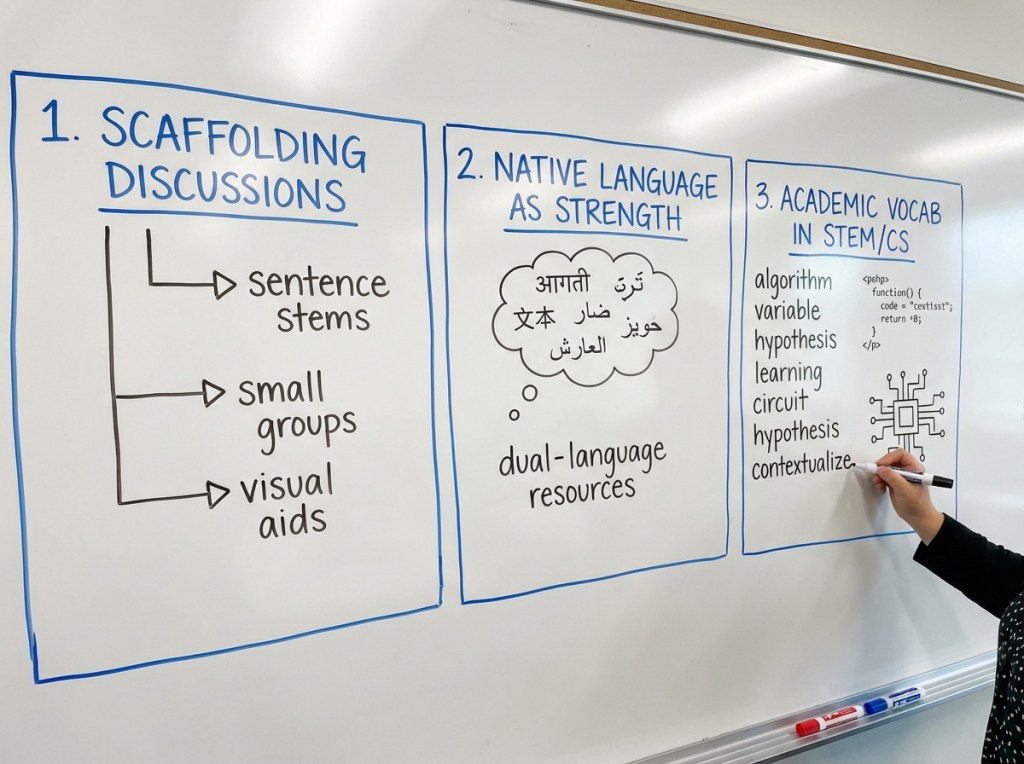 1. SCAFFOLDING
DISCUSSIONS
sentence
stems
small
groups
visual
aids
2. NATIVE LANGUAGE
AS STRENGTH
आगती
文本 ضار
حويز
العارش
dual-language
resources
3. ACADEMIC VOCAB
IN STEM/CS
algorithm
variable
hypothesis
learning
circuit
hypothesis
contextualize
function() {
code =
return
}
</p>